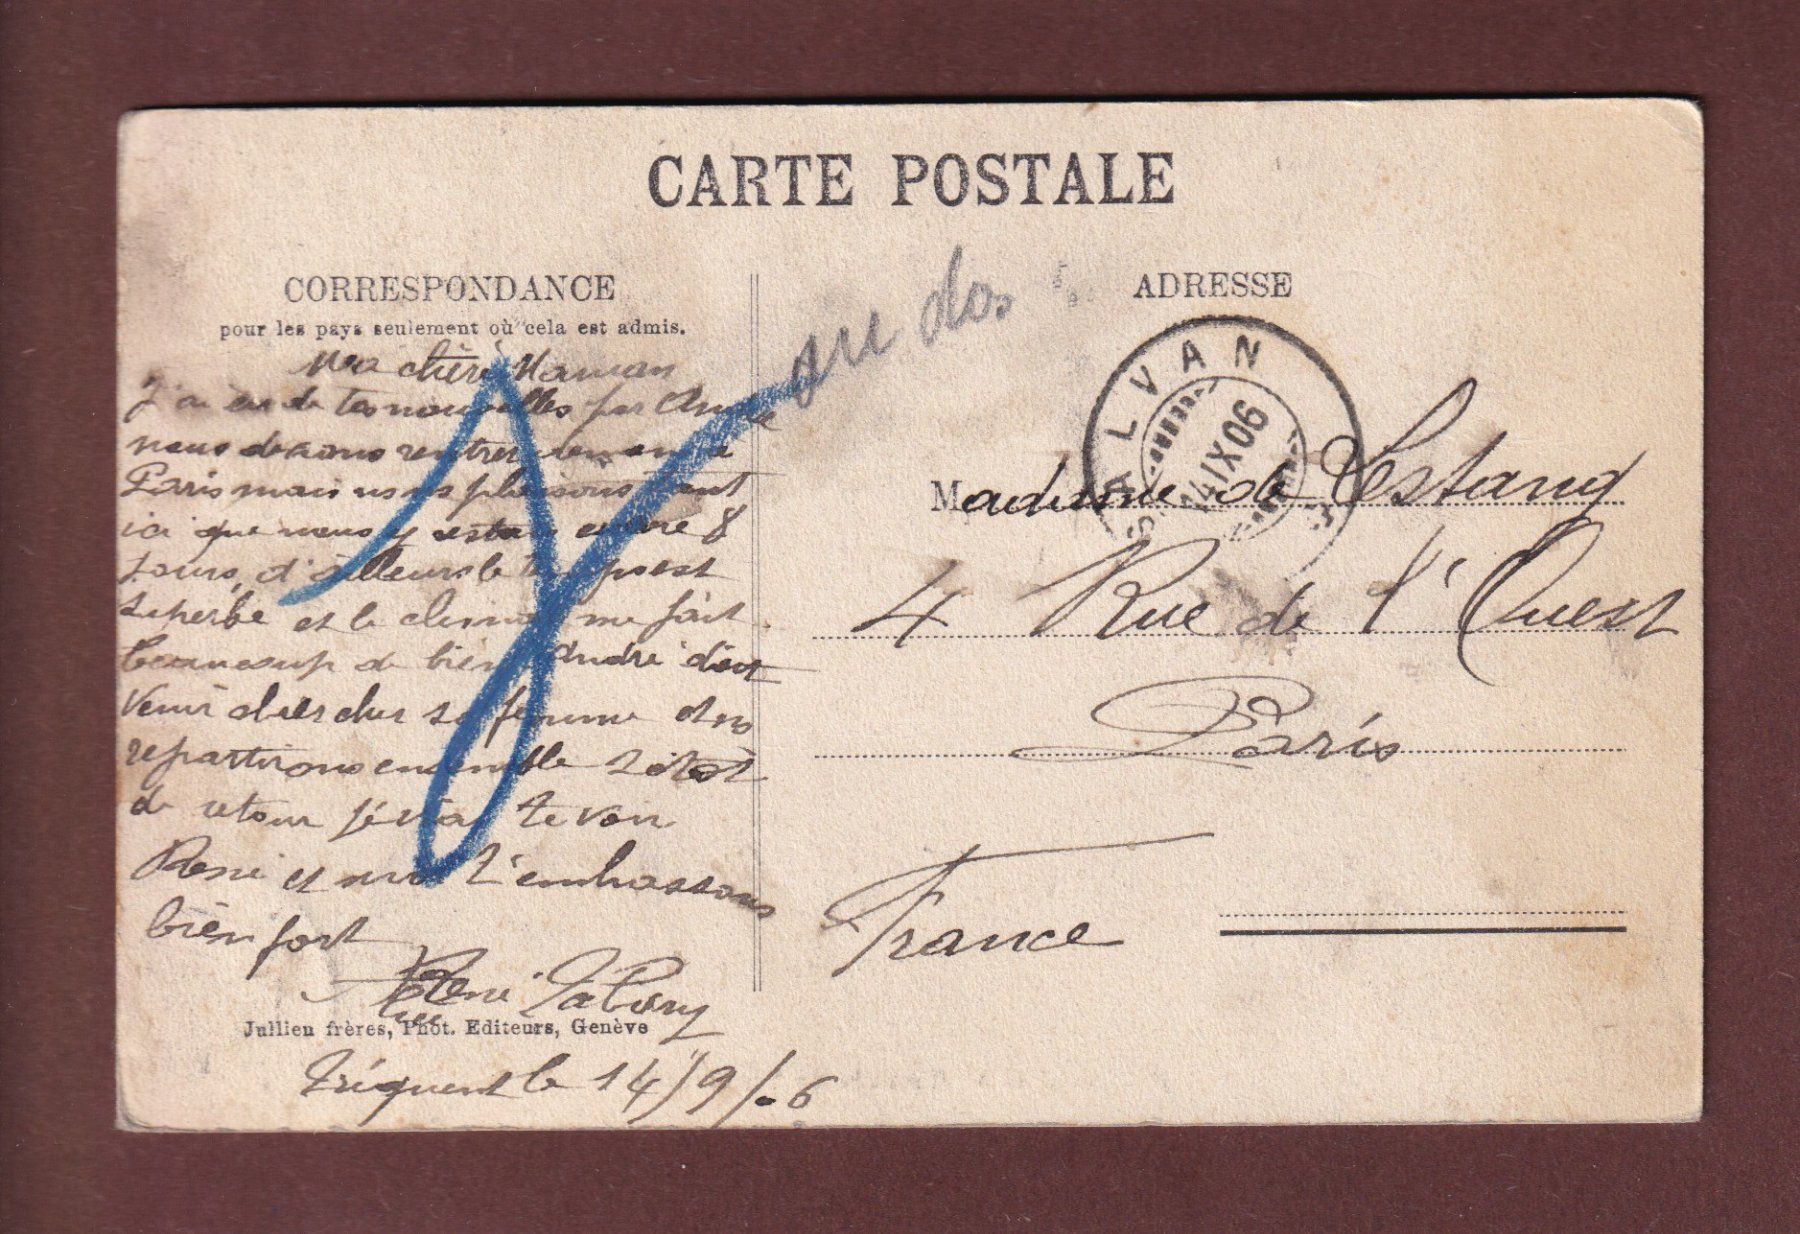 CARTE POSTALE
CORRESPONDANCE
pour les pays seulement où cela est admis.
ADRESSE
au dos
SALVAN
14 IX 06
Ma chère Maman
J'ai eu de tes nouvelles par
nous devions rentrer demain a
Paris mais nous plaisons tant
ici que nous y restons encore 8
Jours, d'ailleurs le temps est
superbe et le climat me fait
beaucoup de bien André doit
venir chercher sa femme
repartirons ensemble
de retour j'irai te voir
René et moi t'embrassons
bien fort
René
Jullien frères, Phot. Editeurs, Genève
Triquent le 14/9/.6
Madame de Lestang
4 Rue de l'Ouest
Paris
France